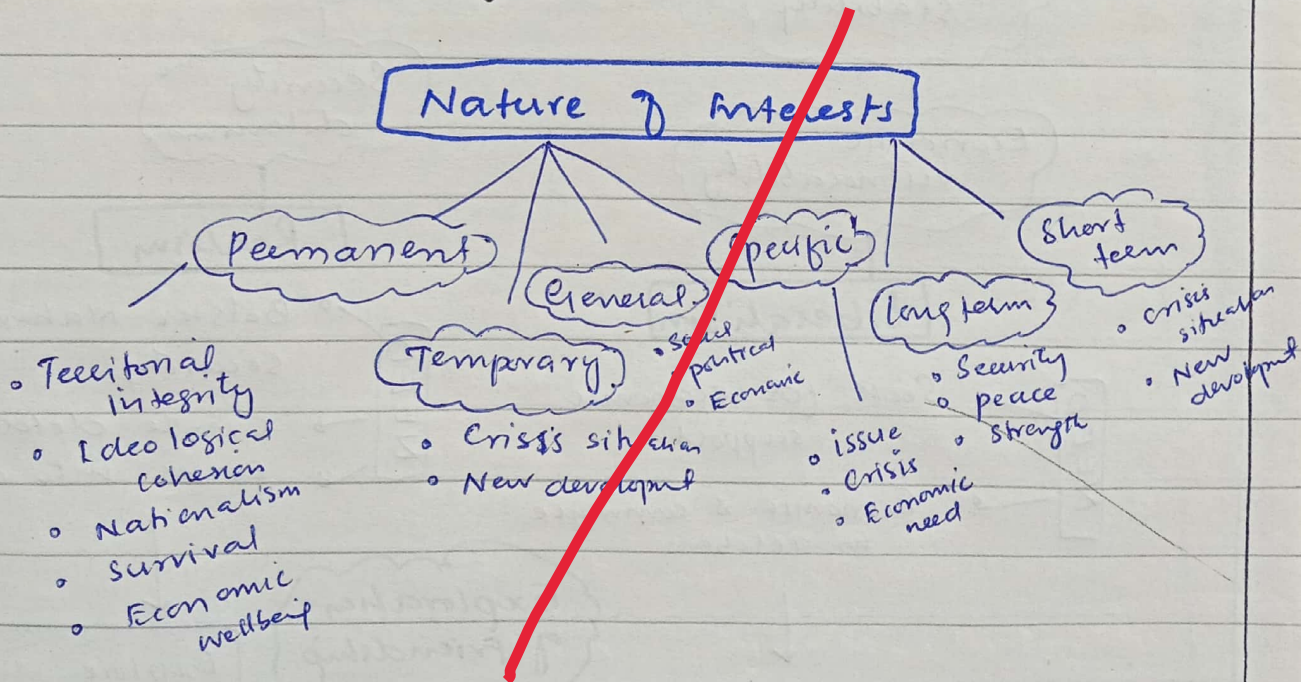 Nature of interests
Permanent
Territorial
integrity
Ideological
cohesion
Nationalism
Survival
Economic
wellbeing
Temporary
Crisis situation
New developmt
General
Social
political
Economic
Specific
issue
Crisis
Economic
need
long term
Security
peace
strength
Short
term
crisis
situation
New
devolopmt